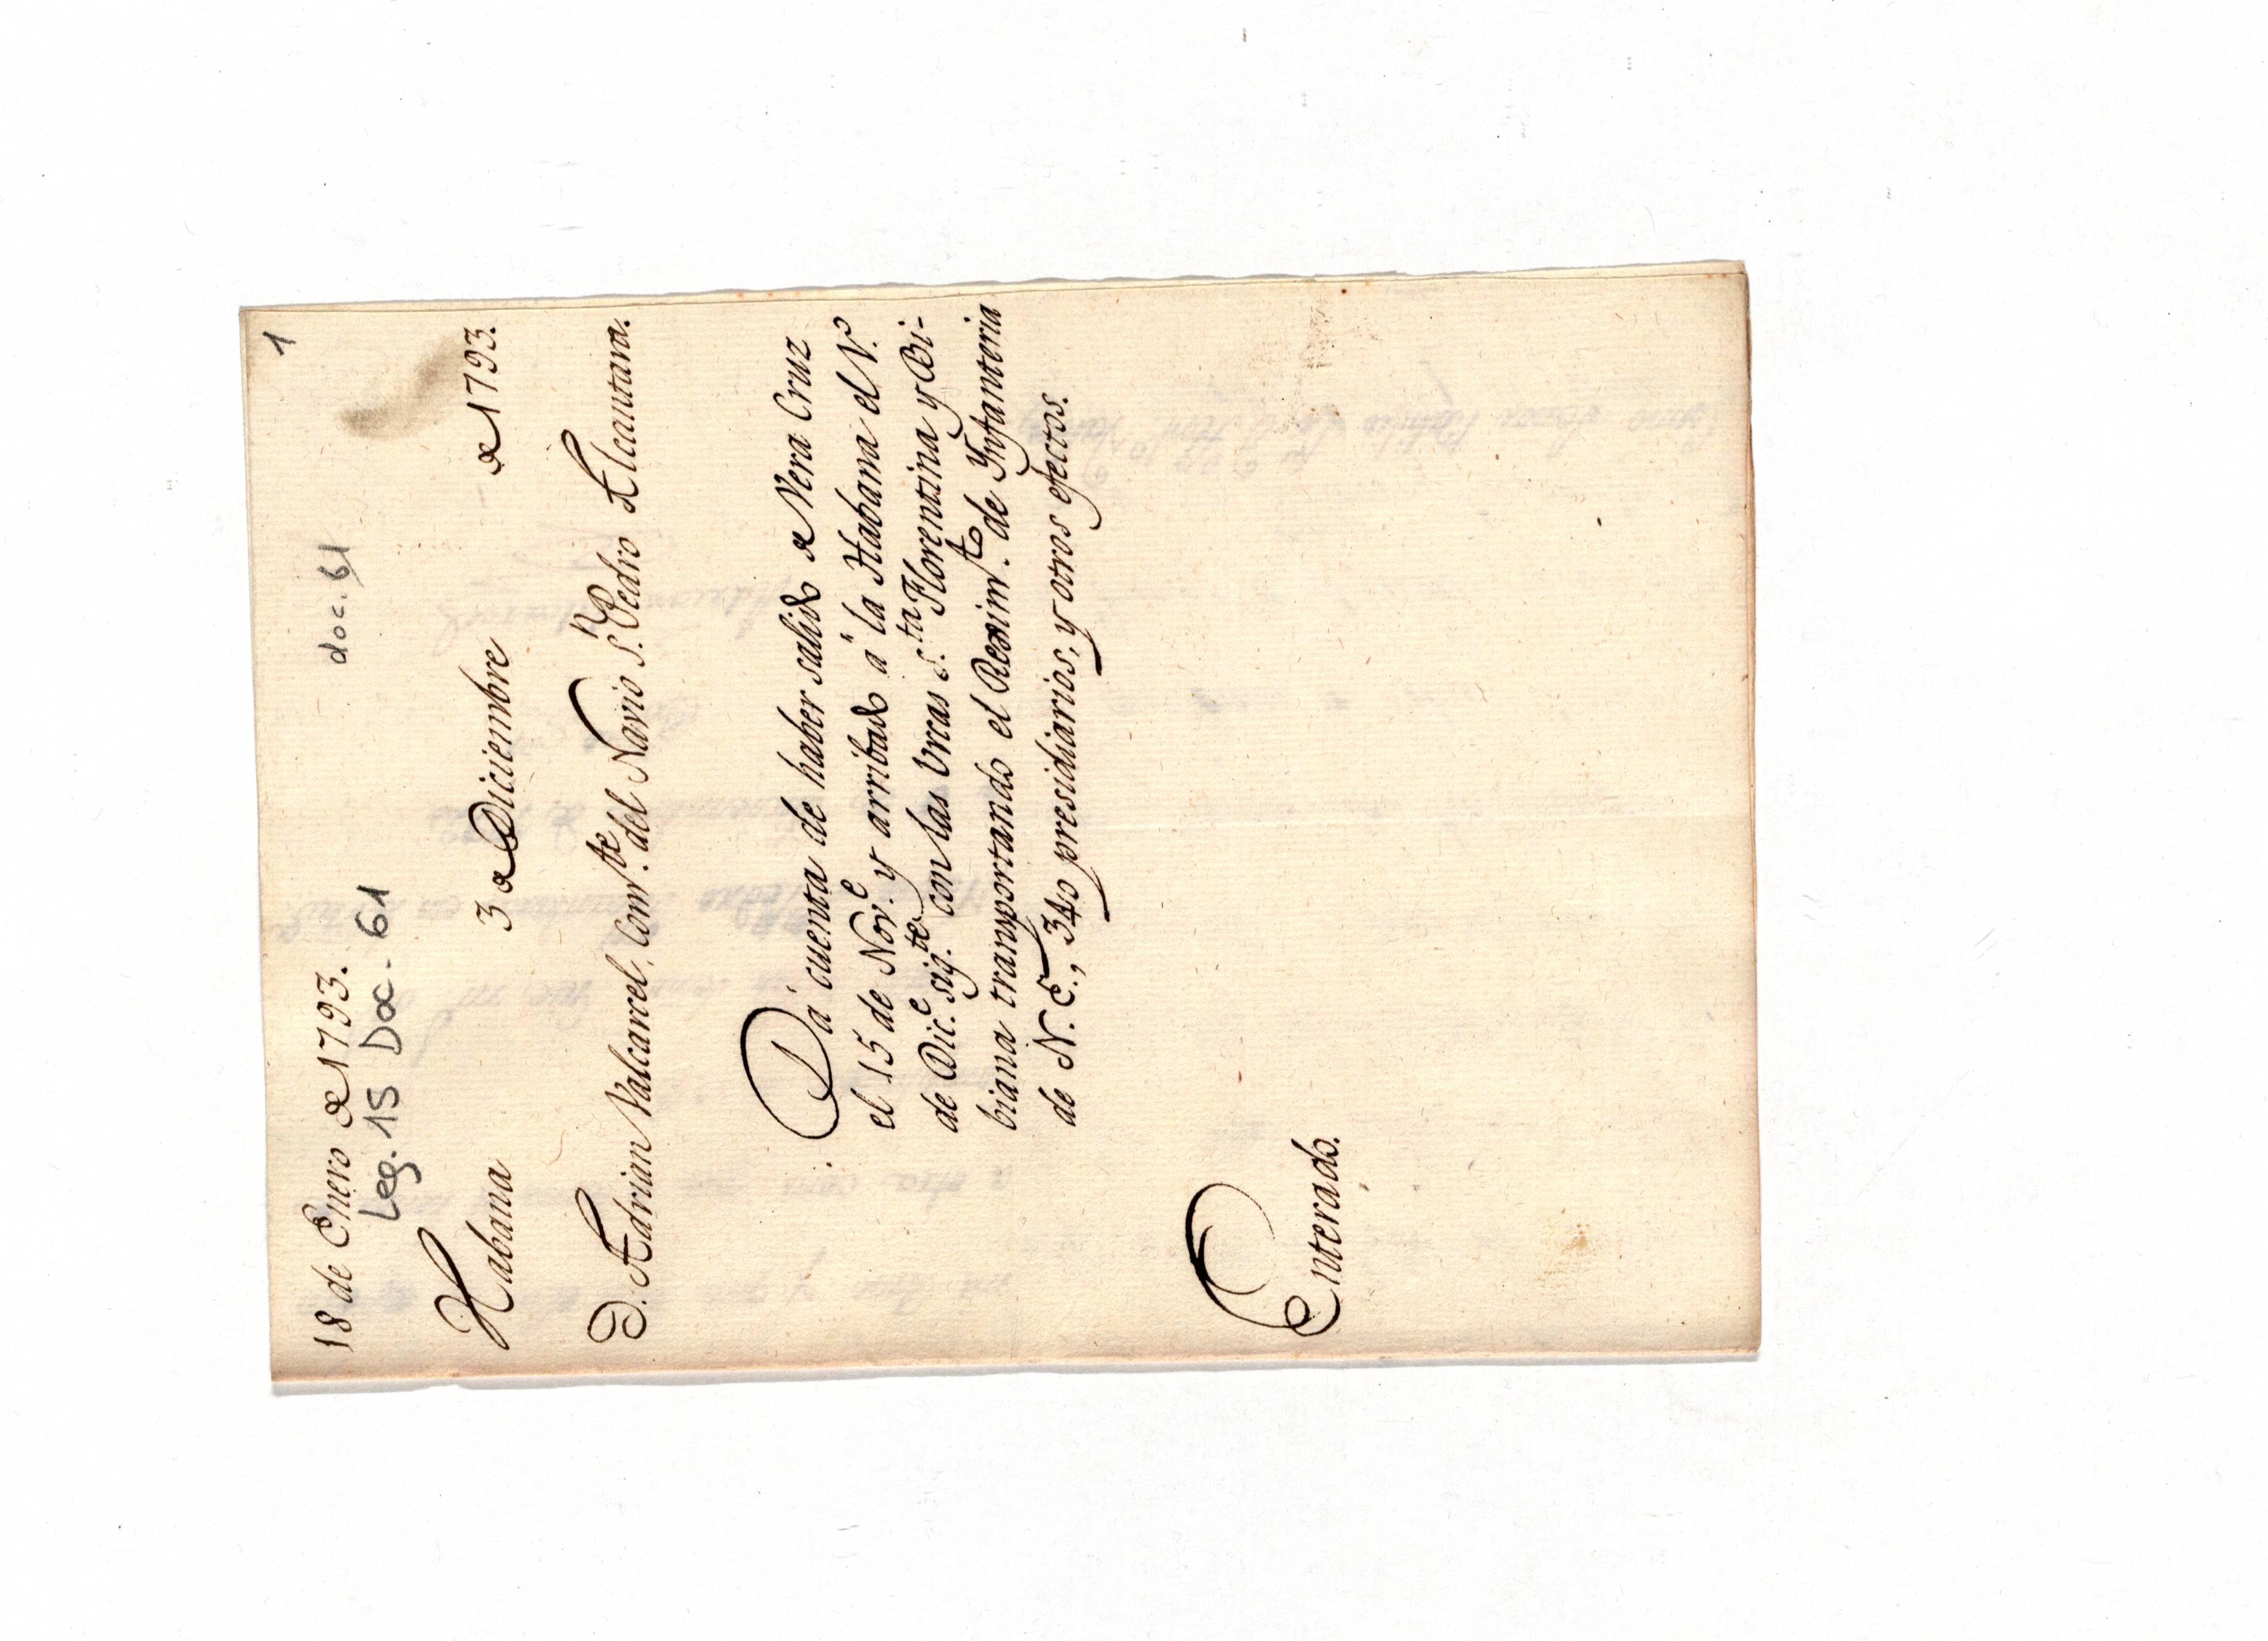 1
18 de Enero de 1793.
doc. 61
Leg. 15 Doc. 61
Habana 3 de Diciembre de 1793.
D. Adrian Valcarcel, Com.te del Navio S.n Pedro Alcantara.
Dá cuenta de haber salido de Vera Cruz
el 15 de Nov.e y arribado á la Habana el 1.º
de Dic.e sig.te con las Urcas S.ta Florentina y Bi-
biana transportando el Regim.to de Ynfanteria
de N. E., 340 presidiarios, y otros efectos.
Enterado.